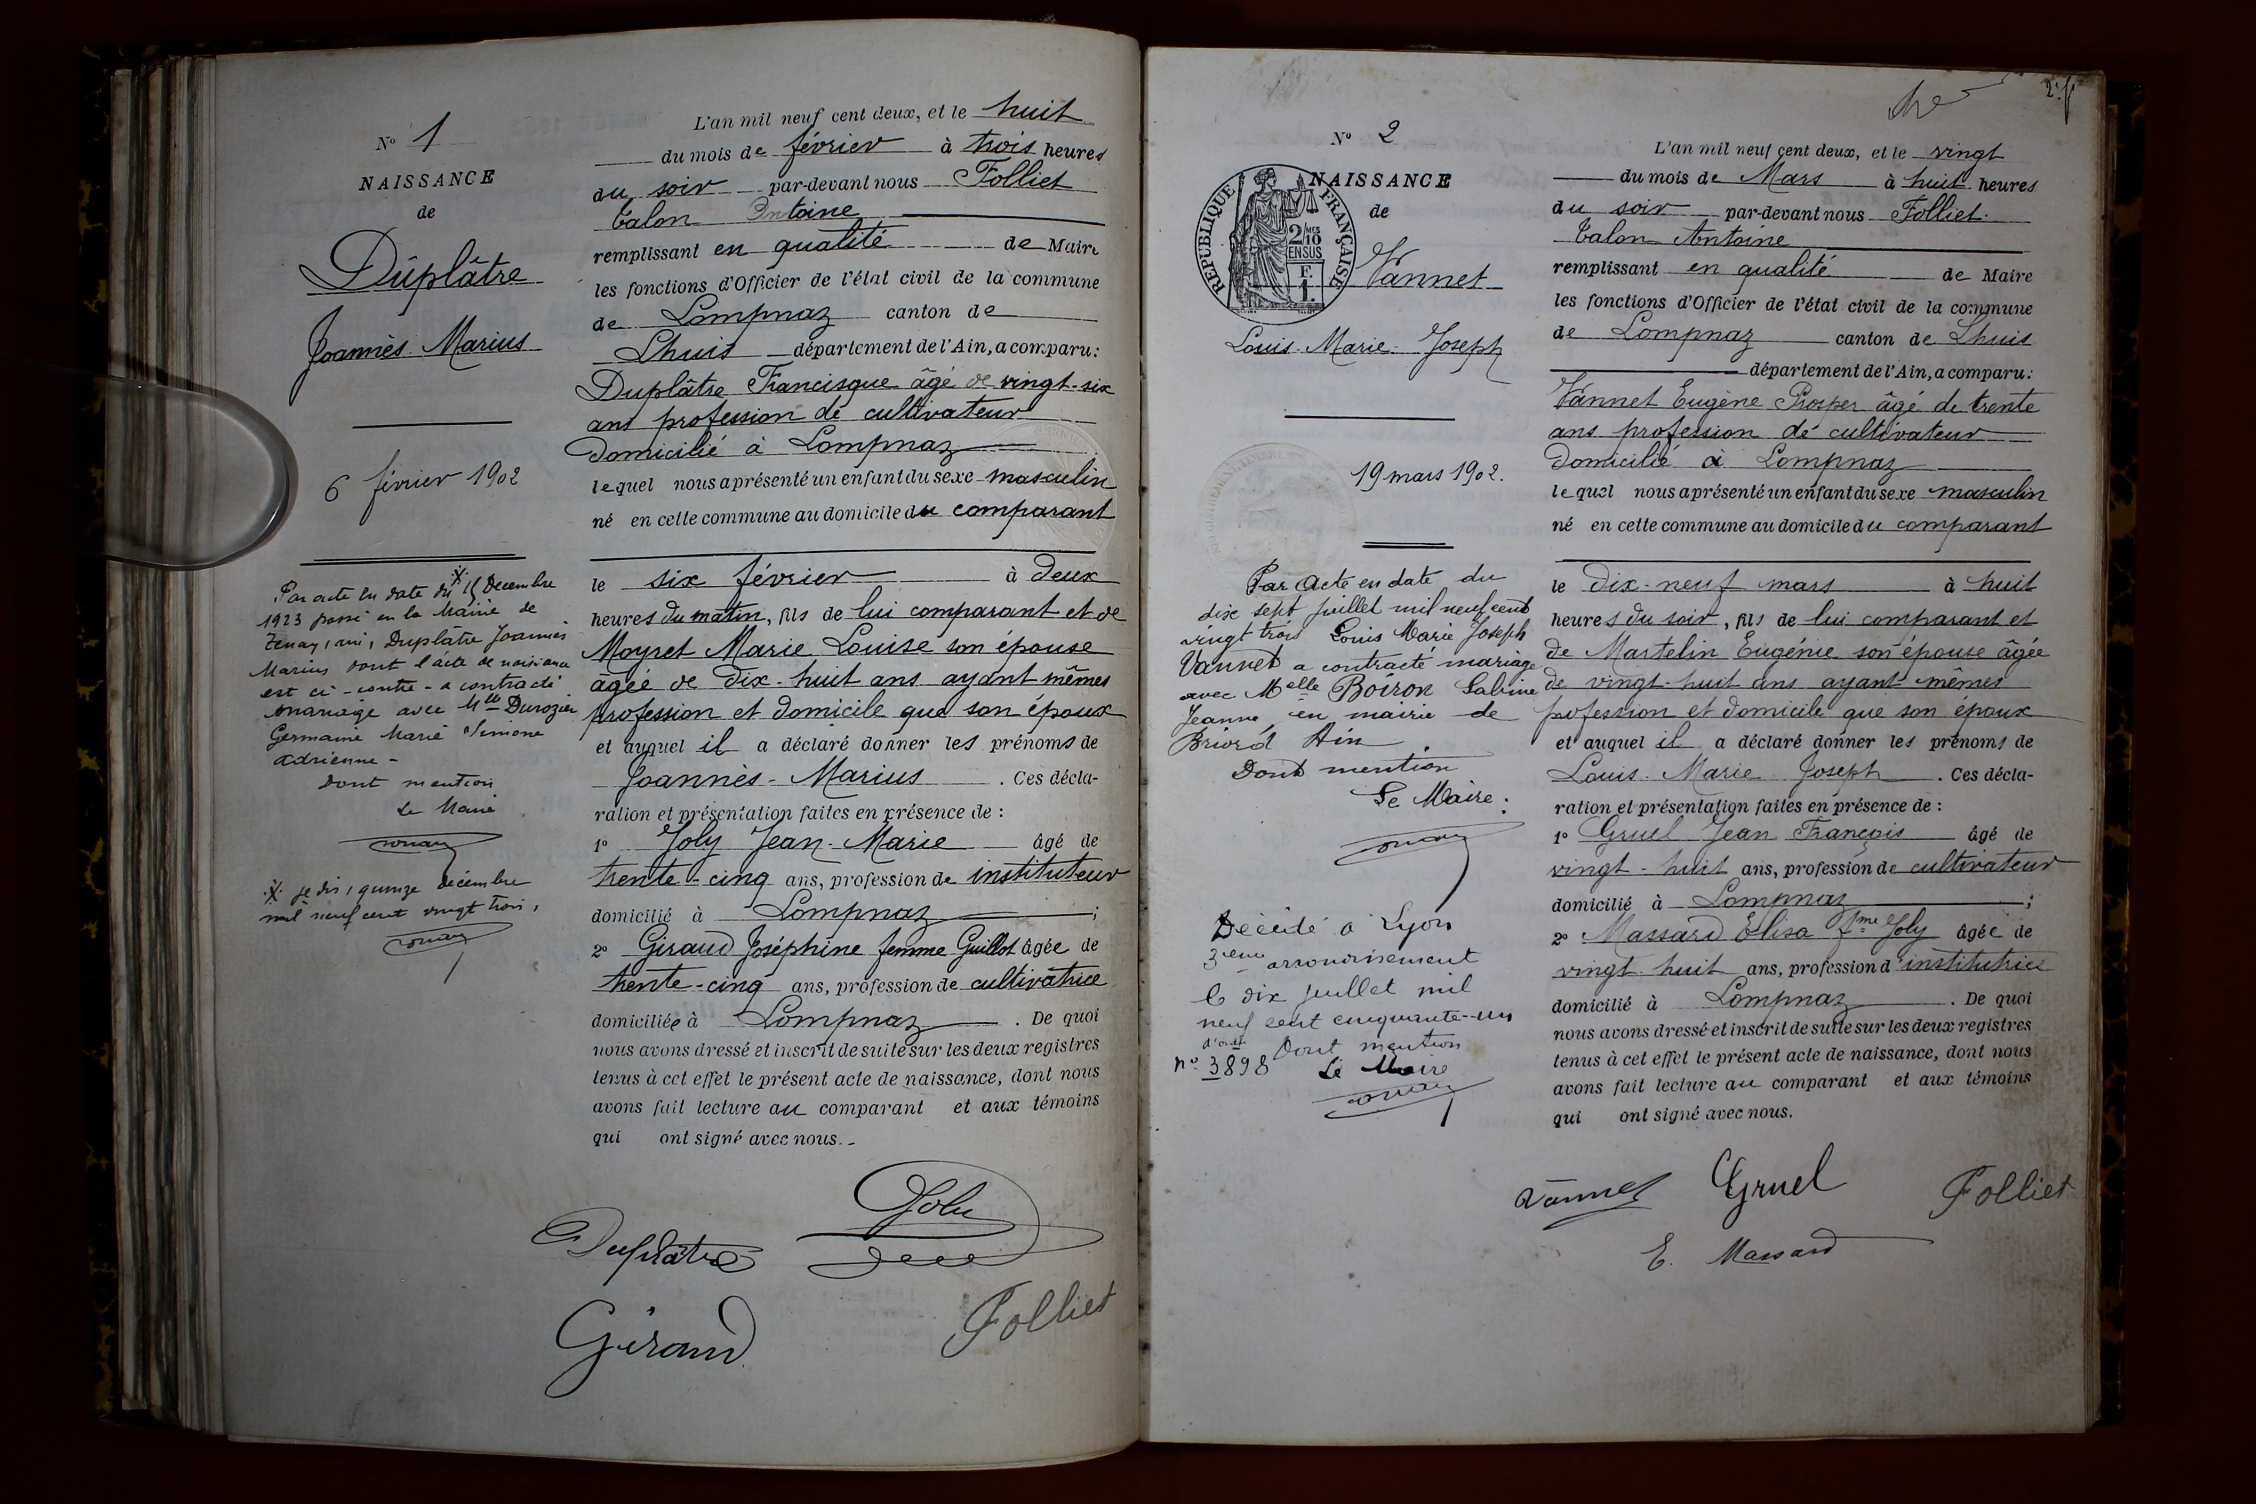 N° 1
NAISSANCE
de
Duplâtre
Joannès Marius
6 février 1902
Par acte en date du 15 Décembre
1923 passé en la Mairie de
Tenay, ain, Duplâtre Joannès
Marius dont l'acte de naissance
est ci-contre - a contracté
mariage avec Mlle Durozier
Germaine Marie Simone
Adrienne -
Dont mention
Le Maire
je dis, quinze décembre
mil neuf cent vingt trois,
L'an mil neuf cent deux, et le huit
du mois de février à trois heures
du soir par-devant nous Folliet
Talon Antoine
remplissant en qualité de Maire
les fonctions d'Officier de l'état civil de la commune
de Lompnaz canton de
Lhuis département de l'Ain, a comparu:
Duplâtre Francisque âgé de vingt-six
ans profession de cultivateur
Domicilié à Lompnaz
lequel nous a présenté un enfant du sexe masculin
né en cette commune au domicile du comparant
le six février à deux
heures du matin, fils de lui comparant et de
Moyret Marie Louise son épouse
âgée de dix-huit ans ayant mêmes
profession et domicile que son époux
et auquel il a déclaré donner les prénoms de
Joannès-Marius. Ces décla-
ration et présentation faites en présence de:
1° Joly Jean-Marie âgé de
trente-cinq ans, profession de instituteur
domicilié à Lompnaz;
2° Giraud Joséphine femme Guillot âgée de
trente-cinq ans, profession de cultivatrice
domiciliée à Lompnaz. De quoi
nous avons dressé et inscrit de suite sur les deux registres
tenus à cet effet le présent acte de naissance, dont nous
avons fait lecture au comparant et aux témoins
qui ont signé avec nous.
Joly
Duplâtre
Giraud
Folliet
2.
N° 2
NAISSANCE
de
RÉPUBLIQUE FRANÇAISE
2/10 MES
EN SUS
1 F.
Vannet
Louis Marie Joseph
19 mars 1902.
Par acte en date du
dix sept juillet mil neuf cent
vingt trois Louis Marie Joseph
Vannet a contracté mariage
avec Melle Boiron Sabine
Jeanne, en mairie de
Briord Ain.
Dont mention
Le Maire:
Décédé à Lyon
3eme arrondissement
le dix juillet mil
neuf cent cinquante-un
d'ordre
n° 3898 Dont mention
Le Maire
L'an mil neuf cent deux, et le vingt
du mois de Mars à huit heures
du soir par-devant nous Folliet
Talon Antoine
remplissant en qualité de Maire
les fonctions d'Officier de l'état civil de la commune
de Lompnaz canton de Lhuis
département de l'Ain, a comparu:
Vannet Eugène Prosper âgé de trente
ans profession de cultivateur
Domicilié à Lompnaz
lequel nous a présenté un enfant du sexe masculin
né en cette commune au domicile du comparant
le dix-neuf mars à huit
heures du soir, fils de lui comparant et
de Martelin Eugénie son épouse âgée
de vingt-huit ans ayant mêmes
profession et domicile que son époux
et auquel il a déclaré donner les prénoms de
Louis Marie Joseph. Ces décla-
ration et présentation faites en présence de:
1° Gruel Jean François âgé de
vingt-huit ans, profession de cultivateur
domicilié à Lompnaz;
2° Massard Elisa fme Joly âgée de
vingt huit ans, profession d'institutrice
domicilié à Lompnaz. De quoi
nous avons dressé et inscrit de suite sur les deux registres
tenus à cet effet le présent acte de naissance, dont nous
avons fait lecture au comparant et aux témoins
qui ont signé avec nous.
Vannet Gruel Folliet
E. Massard